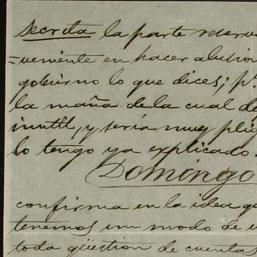 secreta la parte reserv
=veniente en hacer alusion
gobierno lo que dices; p.
la maña de la cual de
inutil, y seria muy pli
lo tengo ya explicado
Domingo
confirma en la idea qu
tenemos un modo de v
toda qüestion de cuenta